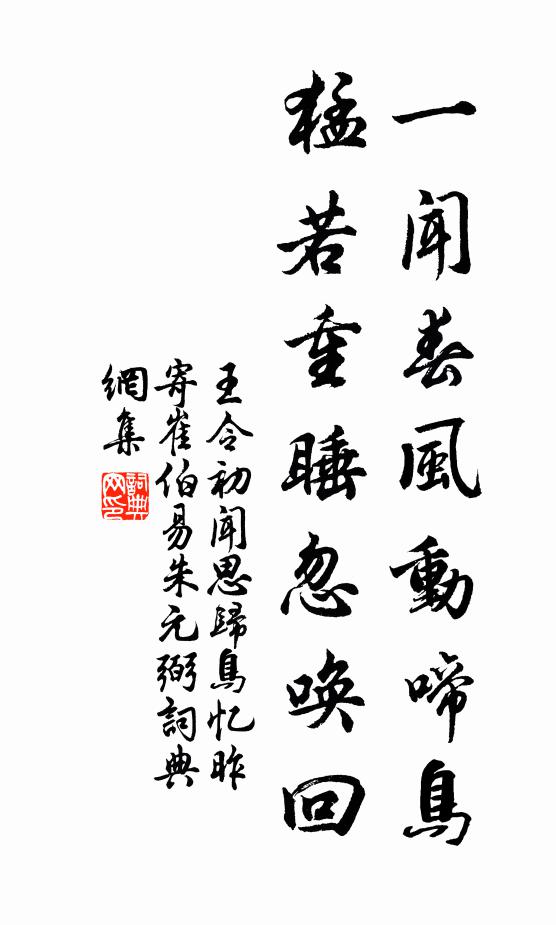 一聞春風動啼鳥
猛若重睡忽唤回
王令初聞思歸鳥忆昨
寄崔伯易朱元弼詞典
網集
詞典
网印